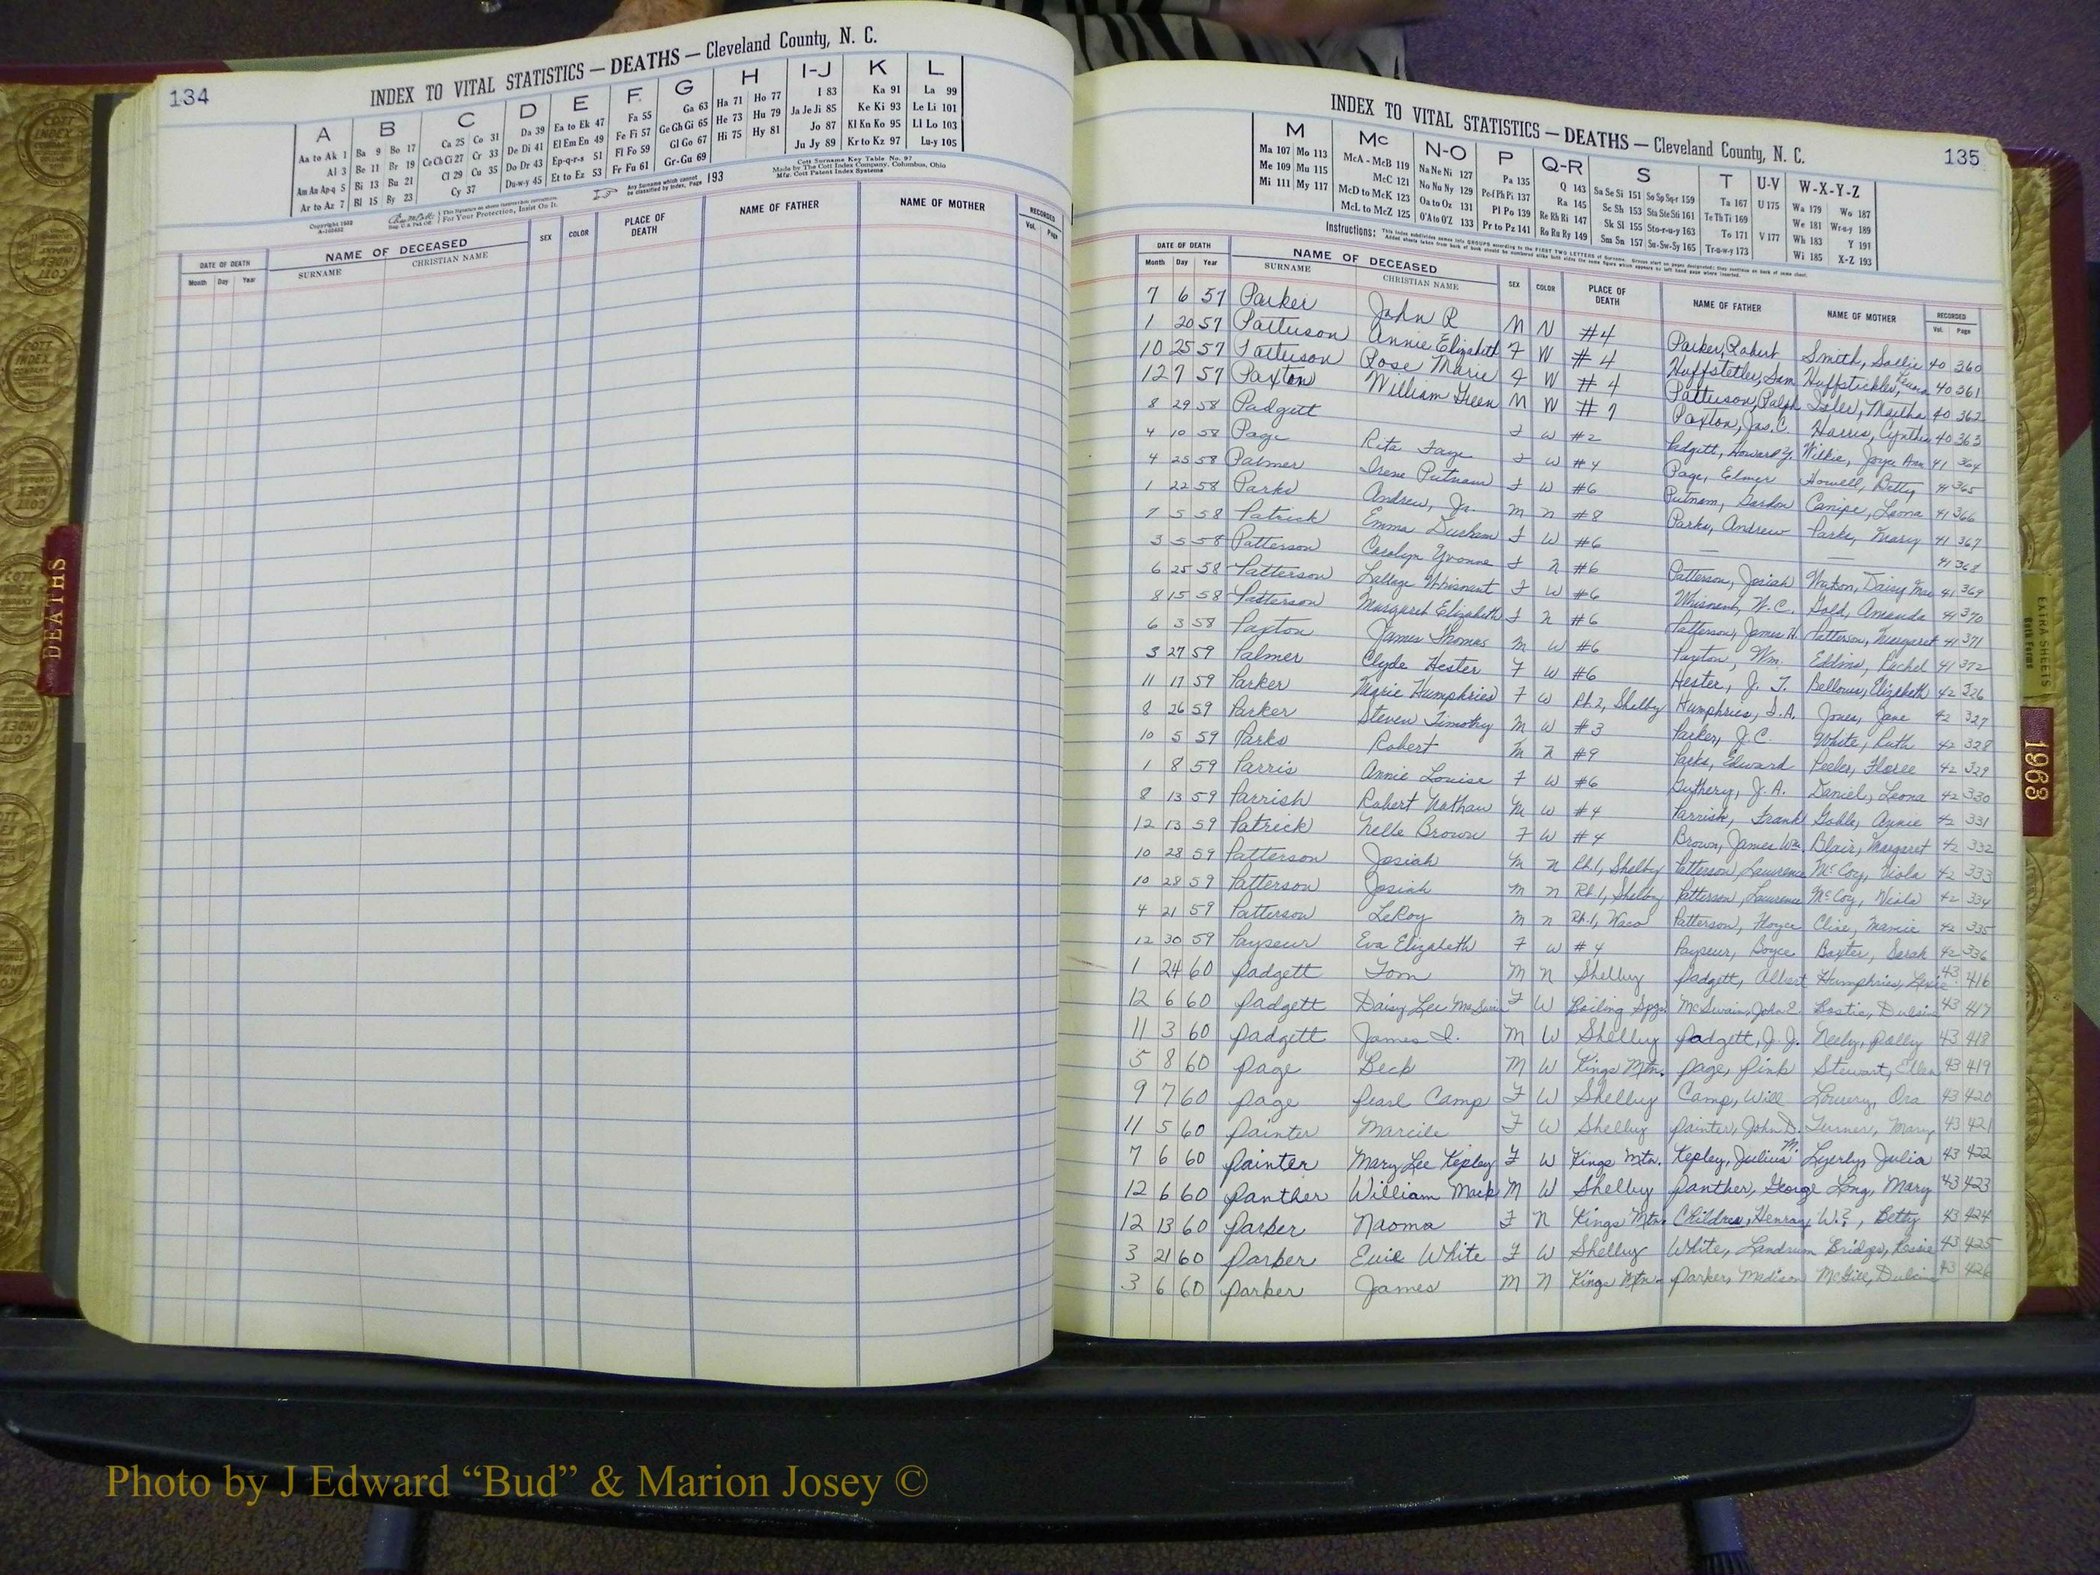 134
INDEX TO VITAL STATISTICS — DEATHS — Cleveland County, N. C.
A B C D E F G H I-J K L
Aa to Ak 1 Ba 9 Bo 17 Ca 25 Co 31 Da 39 Ea to Ek 47 Fa 55 Ga 63 Ha 71 Ho 77 I 83 Ka 91 La 99
Al 3 Be 11 Br 19 Ce Ch Ci 27 Cr 33 De Di 41 El Em En 49 Fe Fi 57 Ge Gh Gi 65 He 73 Hu 79 Ja Je Ji 85 Ke Ki 93 Le Li 101
Am An Ap-q 5 Bi 13 Bu 21 Cl 29 Cu 35 Do Dr 43 Ep-q-r-s 51 Fl Fo 59 Gl Go 67 Hi 75 Hy 81 Jo 87 Kl Kn Ko 95 Ll Lo 103
Ar to Az 7 Bl 15 By 23 Cy 37 Du-w-y 45 Et to Ez 53 Fr Fu 61 Gr-Gu 69 Ju Jy 89 Kr to Kz 97 Lu-y 105
Copyright 1932 A-103482
For Your Protection, Insist On It.
Any Surname which cannot be classified by Index, Page 193
Cott Surname Key Table No. 97
Made by The Cott Index Company, Columbus, Ohio
Mfg. Cott Patent Index Systems
DATE OF DEATH NAME OF DECEASED SEX COLOR PLACE OF DEATH NAME OF FATHER NAME OF MOTHER RECORDED
Month Day Year SURNAME CHRISTIAN NAME Vol. Page
INDEX TO VITAL STATISTICS — DEATHS — Cleveland County, N. C.
135
M Mc N-O P Q-R S T U-V W-X-Y-Z
Ma 107 Mo 113 McA - McB 119 Na Ne Ni 127 Pa 135 Q 143 Sa Se Si 151 So Sp Sq-r 159 Ta 167 U 175 Wa 179 Wo 187
Me 109 Mu 115 McC 121 No Nu Ny 129 Pe-f Ph Pi 137 Ra 145 Sc Sh 153 Sta Ste Sti 161 Te Th Ti 169 We 181 Wr-u-y 189
Mi 111 My 117 McD to McK 123 Oa to Oz 131 Pl Po 139 Re Rh Ri 147 Sk Sl 155 Sto-r-u-y 163 To 171 V 177 Wh 183 Y 191
McL to McZ 125 O'A to O'Z 133 Pr to Pz 141 Ro Ru Ry 149 Sm Sn 157 Su-Sw-Sy 165 Tr-u-w-y 173 Wi 185 X-Z 193
Instructions: This index subdivides names into GROUPS according to the FIRST TWO LETTERS of Surname.
DATE OF DEATH NAME OF DECEASED SEX COLOR PLACE OF DEATH NAME OF FATHER NAME OF MOTHER RECORDED
Month Day Year SURNAME CHRISTIAN NAME Vol. Page
7 6 57 Parker John R M N #4 Parker, Robert Smith, Sallie 40 360
1 20 57 Patterson Annie Elizabeth F W #4 Huffstetler, Sam Huffstickler, 40 361
10 25 57 Patterson Rose Marie F W #4 Patterson, Ralph Isler, Martha 40 362
12 7 57 Paxton William Green M W #7 Paxton, Jas. C. Harris, Cynthia 40 363
8 29 58 Padgett F W #2 Padgett, Howard Y. Wilkie, Joyce Ann 41 364
4 10 58 Page Rita Faye F W #4 Page, Elmer Howell, Betty 41 365
4 25 58 Palmer Irene Putnam F W #6 Putnam, Gordon Canipe, Leona 41 366
1 22 58 Parks Andrew, Jr. M N #8 Parks, Andrew Parks, Mary 41 367
7 5 58 Patrick Emma Durham F W #6 — — 41 368
3 5 58 Patterson Carolyn Yvonne F N #6 Patterson, Josiah Watson, Daisy Mae 41 369
6 25 58 Patterson Lallage Whisnant F W #6 Whisnant, W. C. Gold, Amanda 41 370
8 15 58 Patterson Margaret Elizabeth F N #6 Patterson, James H. Patterson, Margaret 41 371
6 3 58 Paxton James Thomas M W #6 Paxton, Wm. Eddins, Rachel 41 372
3 27 59 Palmer Clyde Hester F W #6 Hester, J. T. Bellows, Elizabeth 42 326
11 17 59 Parker Marie Humphries F W Rt. 2, Shelby Humphries, S.A. Jones, Jane 42 327
8 26 59 Parker Steven Timothy M W #3 Parker, J.C. White, Ruth 42 328
10 5 59 Parks Robert M N #9 Parks, Edward Peeler, Floree 42 329
1 8 59 Parris Annie Louise F W #6 Guthery, J. A. Daniel, Leona 42 330
8 13 59 Parrish Robert Nathan M W #4 Parrish, Frank Goble, Annie 42 331
12 13 59 Patrick Nelle Brown F W #4 Brown, James Wm. Blair, Margaret 42 332
10 28 59 Patterson Josiah M N Rt. 1, Shelby Patterson, Lawrence McCoy, Viola 42 333
10 28 59 Patterson Josiah M N Rt. 1, Shelby Patterson, Lawrence McCoy, Viola 42 334
4 21 59 Patterson LeRoy M N Rt. 1, Waco Patterson, Floyce Cline, Mamie 42 335
12 30 59 Payseur Eva Elizabeth F W #4 Payseur, Boyce Baxter, Sarah 42 336
1 24 60 Padgett Tom M N Shelby Padgett, Albert Humphries, 43 416
12 6 60 Padgett Daisy Lee McSwain F W Boiling Spgs. McSwain, John E. Bostic, Dulcin 43 417
11 3 60 Padgett James I. M W Shelby Padgett, J. J. Neely, Polly 43 418
5 8 60 Page Beck M W Kings Mtn. Page, Pink Stewart, Ellen 43 419
9 7 60 Page Pearl Camp F W Shelby Camp, Will Lowery, Ora 43 420
11 5 60 Painter Marcile F W Shelby Painter, John D. Turner, Mary 43 421
7 6 60 Painter Mary Lee Kepley F W Kings Mtn. Kepley, Julius M. Lyerly, Julia 43 422
12 6 60 Panther William Mack M W Shelby Panther, George Long, Mary 43 423
12 13 60 Parker Naoma F N Kings Mtn. Childres, Henray W.?, Betty 43 424
3 21 60 Parker Evie White F W Shelby White, Landrum Bridges, 43 425
3 6 60 Parker James M N Kings Mtn. Parker, Madison McGill, Dulcin 43 426
DEATHS
EXTRA SHEETS
1963
Photo by J Edward “Bud” & Marion Josey ©